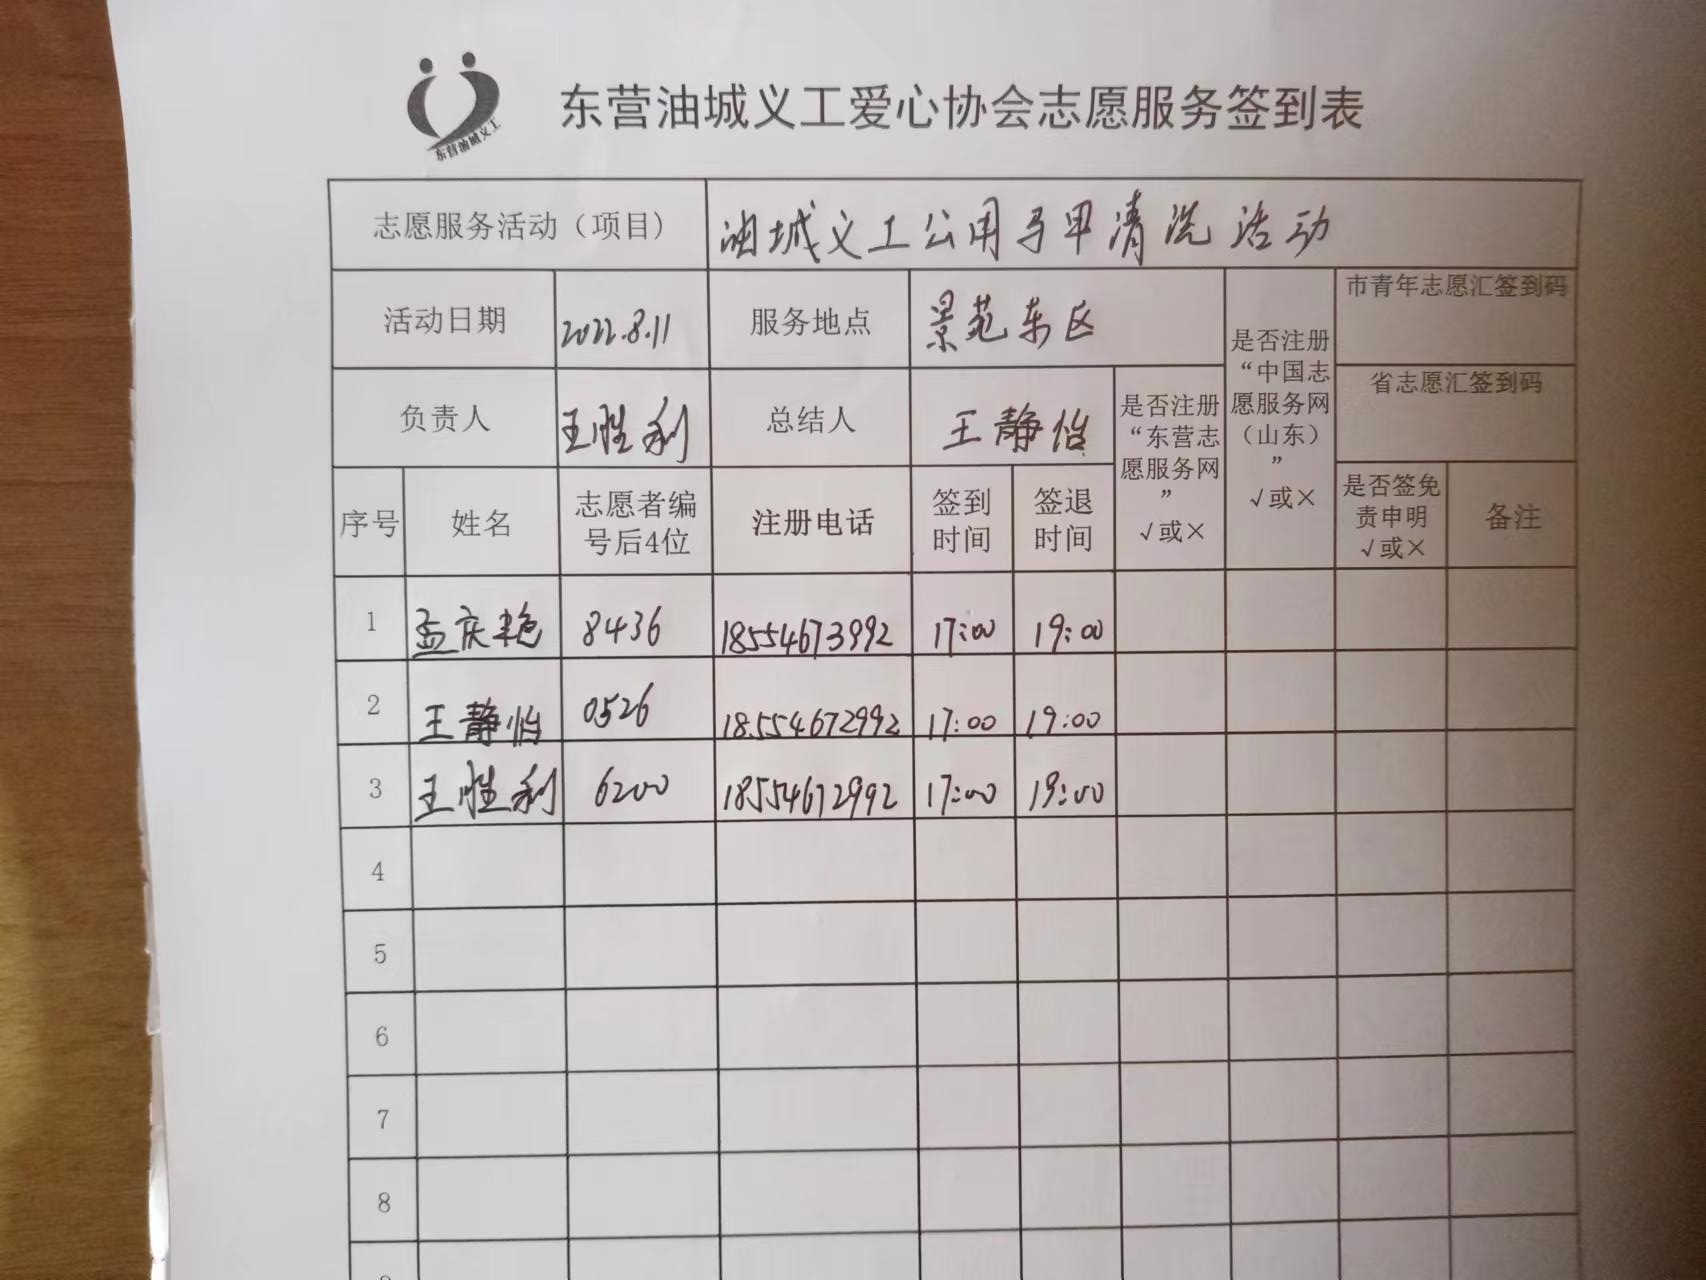 东营油城义工
东营油城义工爱心协会志愿服务签到表
志愿服务活动（项目） 油城义工公用马甲清洗活动
活动日期 2022.8.11 服务地点 景苑东区 是否注册“中国志愿服务网（山东）” √或× 市青年志愿汇签到码
省志愿汇签到码
负责人 王胜利 总结人 王静怡 是否注册“东营志愿服务网” √或×
序号 姓名 志愿者编号后4位 注册电话 签到时间 签退时间 是否签免责申明 √或× 备注
1 孟庆艳 8436 18554673992 17:00 19:00
2 王静怡 0526 18554672992 17:00 19:00
3 王胜利 6200 18554672992 17:00 19:00
4
5
6
7
8